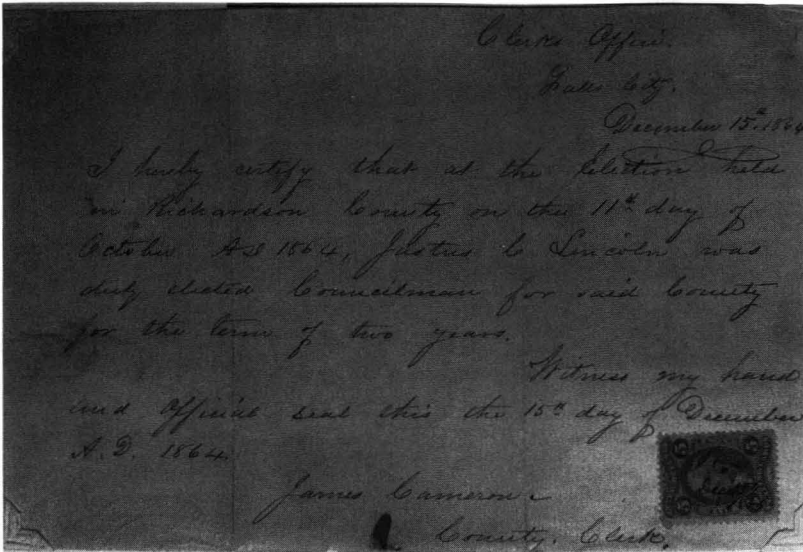 Clerks Office.
Falls City.
December 15th 1864
I hereby certify that at the Election held
in Richardson County on the 11th day of
October A D 1864, Justus C Lincoln was
duly elected Councilman for said County
for the term of two years.
Witness my hand
and Official seal this the 15th day of December
A. D. 1864.
James Cameron
County Clerk.